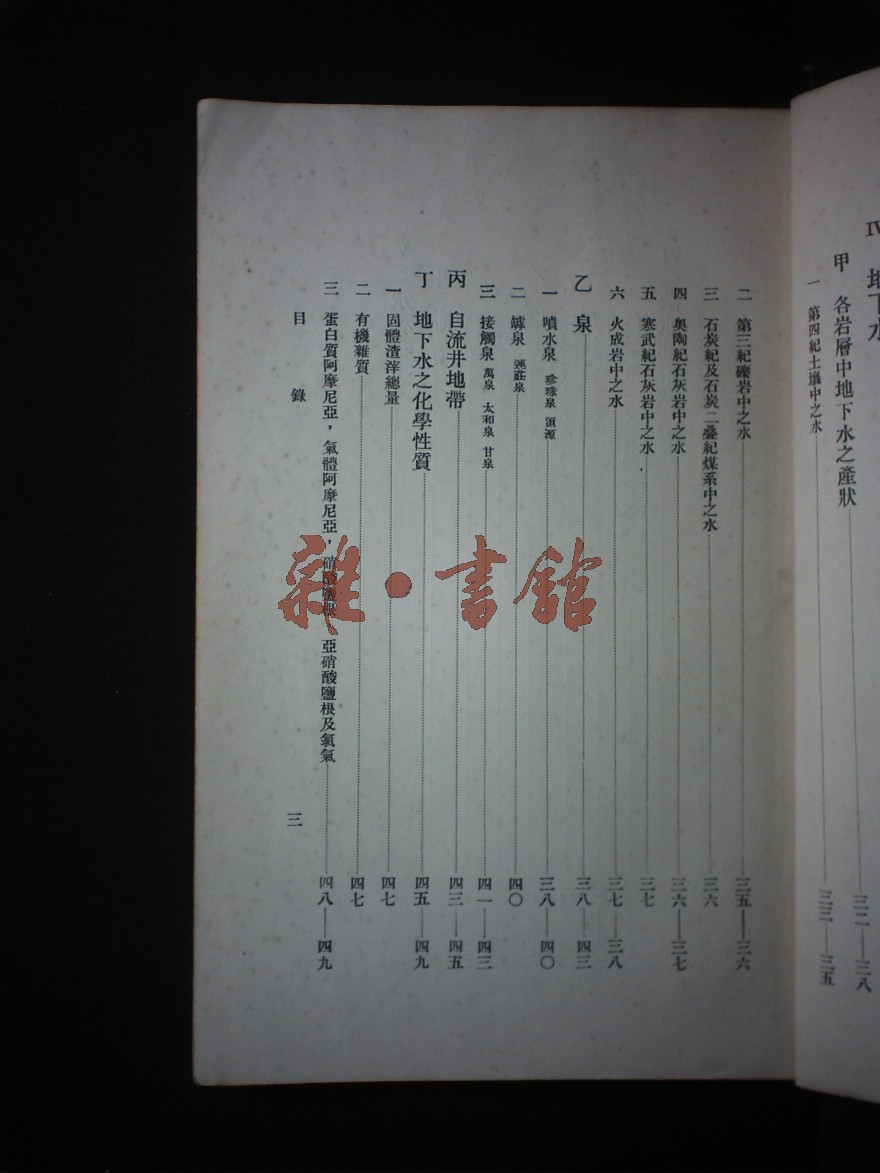 IV 地下水
甲 各岩層中地下水之產狀 三二——三八
一 第四紀土壤中之水 三三——三五
二 第三紀礫岩中之水 三五——三六
三 石炭紀及石炭二疊紀煤系中之水 三六
四 奥陶紀石灰岩中之水 三六——三七
五 寒武紀石灰岩中之水 三七
六 火成岩中之水 三七——三八
乙 泉 三八——四三
一 噴水泉 珍珠泉 湏源 三八——四〇
二 罅泉 四〇
三 接觸泉 萬泉 太和泉 甘泉 四一——四三
丙 自流井地帶 四三——四五
丁 地下水之化學性質 四五——四九
一 固體渣滓總量 四七
二 有機雜質 四七
三 蛋白質阿摩尼亞，氣體阿摩尼亞，硝酸鹽根 亞硝酸鹽根及氯氣 四八——四九
目 錄
三
雜·書館